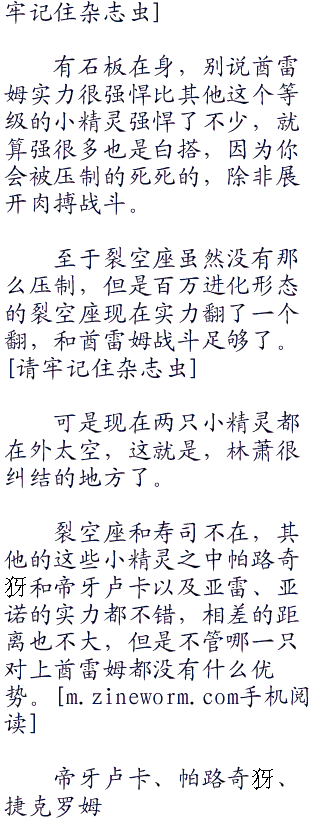 牢记住杂志虫]
有石板在身，别说酋雷
姆实力很强悍比其他这个等
级的小精灵强悍了不少，就
算强很多也是白搭，因为你
会被压制的死死的，除非展
开肉搏战斗。
至于裂空座虽然没有那
么压制，但是百万进化形态
的裂空座现在实力翻了一个
翻，和酋雷姆战斗足够了。
[请牢记住杂志虫]
可是现在两只小精灵都
在外太空，这就是，林萧很
纠结的地方了。
裂空座和寿司不在，其
他的这些小精灵之中帕路奇
犽和帝牙卢卡以及亚雷、亚
诺的实力都不错，相差的距
离也不大，但是不管哪一只
对上酋雷姆都没有什么优
势。[m.zineworm.com手机阅
读]
帝牙卢卡、帕路奇犽、
捷克罗姆